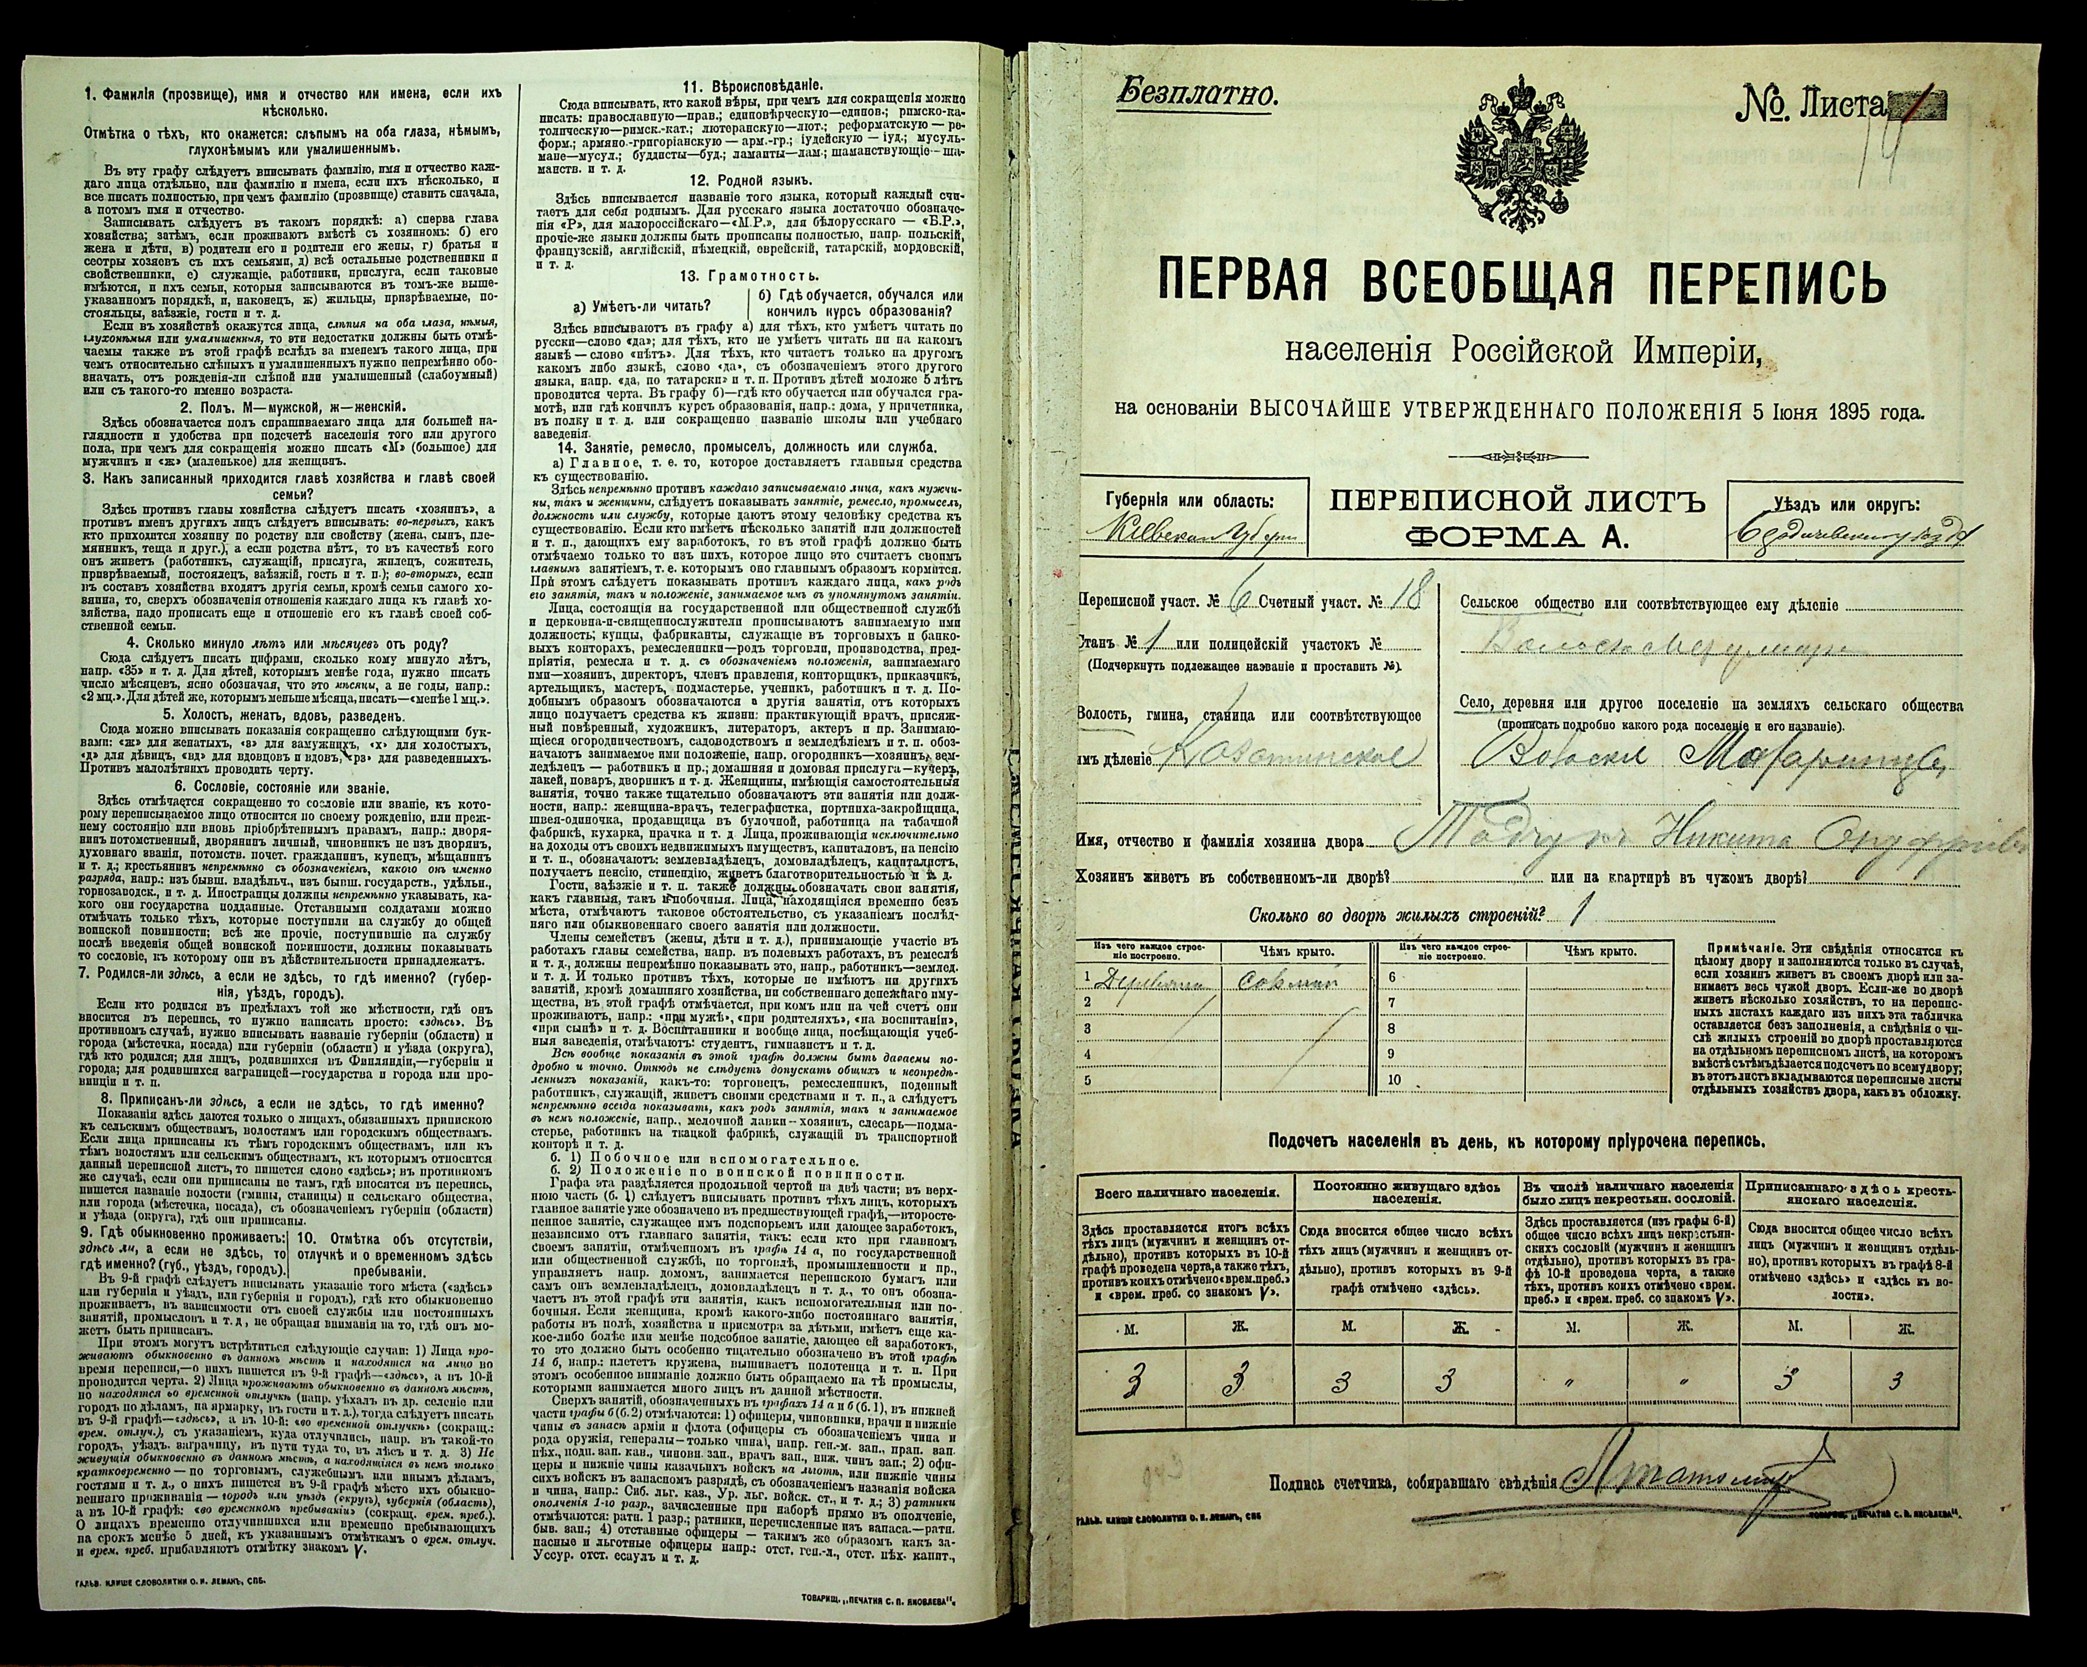 1. Фамилія (прозвище), имя и отчество или имена, если ихъ
нѣсколько.
Отмѣтка о тѣхъ, кто окажется: слѣпымъ на оба глаза, нѣмымъ,
глухонѣмымъ или умалишеннымъ.
Въ эту графу слѣдуетъ вписывать фамилію, имя и отчество каж-
даго лица отдѣльно, или фамилію и имена, если ихъ нѣсколько, и
все писать полностью, при чемъ фамилію (прозвище) ставить сначала,
а потомъ имя и отчество.
Записывать слѣдуетъ въ такомъ порядкѣ: а) сперва глава
хозяйства; затѣмъ, если проживаютъ вмѣстѣ съ хозяиномъ: б) его
жена и дѣти, в) родители его и родители его жены, г) братья и
сестры хозяевъ съ ихъ семьями, д) всѣ остальные родственники и
свойственники, е) служащіе, работники, прислуга, если таковые
имѣются, и ихъ семьи, которыя записываются въ томъ-же выше-
указанномъ порядкѣ, и, наконецъ, ж) жильцы, призрѣваемые, по-
стояльцы, заѣзжіе, гости и т. д.
Если въ хозяйствѣ окажутся лица, слѣпыя на оба глаза, нѣмыя,
глухонѣмыя или умалишенныя, то эти недостатки должны быть отмѣ-
чаемы также въ этой графѣ вслѣдъ за именемъ такого лица, при
чемъ относительно слѣпыхъ и умалишенныхъ нужно непремѣнно обо-
значать, отъ рожденія-ли слѣпой или умалишенный (слабоумный)
или съ такого-то именно возраста.
2. Полъ. М—мужской, ж—женскій.
Здѣсь обозначается полъ спрашиваемаго лица для большей на-
глядности и удобства при подсчетѣ населенія того или другого
пола, при чемъ для сокращенія можно писать «М» (большое) для
мужчинъ и «ж» (маленькое) для женщинъ.
3. Какъ записанный приходится главѣ хозяйства и главѣ своей
семьи?
Здѣсь противъ главы хозяйства слѣдуетъ писать «хозяинъ», а
противъ именъ другихъ лицъ слѣдуетъ вписывать: во-первыхъ, какъ
кто приходится хозяину по родству или свойству (жена, сынъ, пле-
мянникъ, теща и друг.), а если родства нѣтъ, то въ качествѣ кого
онъ живетъ (работникъ, служащій, прислуга, жилецъ, сожитель,
призрѣваемый, постоялецъ, заѣзжій, гость и т. п.); во-вторыхъ, если
въ составъ хозяйства входятъ другія семьи, кромѣ семьи самого хо-
зяина, то, сверхъ обозначенія отношенія каждаго лица къ главѣ хо-
зяйства, надо прописать еще и отношеніе его къ главѣ своей соб-
ственной семьи.
4. Сколько минуло лѣтъ или мѣсяцевъ отъ роду?
Сюда слѣдуетъ писать цифрами, сколько кому минуло лѣтъ,
напр. «35» и т. д. Для дѣтей, которымъ менѣе года, нужно писать
число мѣсяцевъ, ясно обозначая, что это мѣсяцы, а не годы, напр.:
«2 мц.». Для дѣтей же, которымъ меньше мѣсяца, писать—«менѣе 1 мц.».
5. Холостъ, женатъ, вдовъ, разведенъ.
Сюда можно вписывать показанія сокращенно слѣдующими бук-
вами: «ж» для женатыхъ, «з» для замужнихъ, «х» для холостыхъ,
«д» для дѣвицъ, «вд» для вдовцовъ и вдовъ, «рз» для разведенныхъ.
Противъ малолѣтнихъ проводить черту.
6. Сословіе, состояніе или званіе.
Здѣсь отмѣчается сокращенно то сословіе или званіе, къ кото-
рому переписываемое лицо относится по своему рожденію, или преж-
нему состоянію или вновь пріобрѣтеннымъ правамъ, напр.: дворя-
нинъ потомственный, дворянинъ личный, чиновникъ не изъ дворянъ,
духовнаго званія, потомств. почет. гражданинъ, купецъ, мѣщанинъ
и т. д.; крестьянинъ непремѣнно съ обозначеніемъ, какого онъ именно
разряда, напр.: изъ бывш. владѣльч., изъ бывш. государств., удѣльн.,
горнозаводск., и т. д. Иностранцы должны непремѣнно указывать, ка-
кого они государства подданные. Отставными солдатами можно
отмѣчать только тѣхъ, которые поступили на службу до общей
воинской повинности; всѣ же прочіе, поступившіе на службу
послѣ введенія общей воинской повинности, должны показывать
то сословіе, къ которому они въ дѣйствительности принадлежатъ.
7. Родился-ли здѣсь, а если не здѣсь, то гдѣ именно? (губер-
нія, уѣздъ, городъ).
Если кто родился въ предѣлахъ той же мѣстности, гдѣ онъ
вносится въ перепись, то нужно написать просто: «здѣсь». Въ
противномъ случаѣ, нужно вписывать названіе губерніи (области) и
города (мѣстечка, посада) или губерніи (области) и уѣзда (округа),
гдѣ кто родился; для лицъ, родившихся въ Финляндіи,—губерніи и
города; для родившихся заграницей—государства и города или про-
винціи и т. п.
8. Приписанъ-ли здѣсь, а если не здѣсь, то гдѣ именно?
Показанія здѣсь даются только о лицахъ, обязанныхъ припискою
къ сельскимъ обществамъ, волостямъ или городскимъ обществамъ.
Если лица приписаны къ тѣмъ городскимъ обществамъ, или къ
тѣмъ волостямъ или сельскимъ обществамъ, къ которымъ относится
данный переписной листъ, то пишется слово «здѣсь»; въ противномъ
же случаѣ, если они приписаны не тамъ, гдѣ вносятся въ перепись,
пишется названіе волости (гмины, станицы) и сельскаго общества,
или города (мѣстечка, посада), съ обозначеніемъ губерніи (области)
и уѣзда (округа), гдѣ они приписаны.
9. Гдѣ обыкновенно проживаетъ:
здѣсь ли, а если не здѣсь, то
гдѣ именно? (губ., уѣздъ, городъ).
10. Отмѣтка объ отсутствіи,
отлучкѣ и о временномъ здѣсь
пребываніи.
Въ 9-й графѣ слѣдуетъ вписывать указаніе того мѣста («здѣсь»
или губернія и уѣздъ, или губернія и городъ), гдѣ кто обыкновенно
проживаетъ, въ зависимости отъ своей службы или постоянныхъ
занятій, промысловъ и т.д., не обращая вниманія на то, гдѣ онъ мо-
жетъ быть приписанъ.
При этомъ могутъ встрѣтиться слѣдующіе случаи: 1) Лица про-
живаютъ обыкновенно въ данномъ мѣстѣ и находятся на лицо во
время переписи,—о нихъ пишется въ 9-й графѣ—«здѣсь», а въ 10-й
проводится черта. 2) Лица проживаютъ обыкновенно въ данномъ мѣстѣ,
но находятся во временной отлучкѣ (напр. уѣхалъ въ др. селеніе или
городъ по дѣламъ, на ярмарку, въ гости и т. д.), тогда слѣдуетъ писать
въ 9-й графѣ—«здѣсь», а въ 10-й: «во временной отлучкѣ» (сокращ.:
врем. отлуч.), съ указаніемъ, куда отлучились, напр. въ такой-то
городъ, уѣздъ, заграницу, въ пути туда то, въ лѣсъ и т. д. 3) Не
живущія обыкновенно въ данномъ мѣстѣ, а находящіяся въ немъ только
кратковременно — по торговымъ, служебнымъ или инымъ дѣламъ,
гостями и т. д., о нихъ пишется въ 9-й графѣ мѣсто ихъ обыкно-
веннаго проживанія — городъ или уѣздъ (округъ), губернія (область),
а въ 10-й графѣ: «во временномъ пребываніи» (сокращ. врем. преб.).
О лицахъ временно отлучившихся или временно пребывающихъ
на срокъ менѣе 5 дней, къ указаннымъ отмѣткамъ о врем. отлуч.
и врем. преб. прибавляютъ отмѣтку знакомъ V.
ГАЛЬВ. КЛИШЕ СЛОВОЛИТНИ О. И. ЛЕМАНЪ, СПБ.
11. Вѣроисповѣданіе.
Сюда вписывать, кто какой вѣры, при чемъ для сокращенія можно
писать: православную—прав.; единовѣрческую—единов.; римско-ка-
толическую—римск.-кат.; лютеранскую—лют.; реформатскую — ре-
форм.; армяно-григоріанскую — арм.-гр.; іудейскую — іуд.; мусуль-
мане—мусул.; буддисты—буд.; ламаиты—лам.; шаманствующіе—ша-
манств. и т. д.
12. Родной языкъ.
Здѣсь вписывается названіе того языка, который каждый счи-
таетъ для себя роднымъ. Для русскаго языка достаточно обозначе-
нія «Р», для малороссійскаго—«М.Р.», для бѣлорусскаго — «Б.Р.»,
прочіе-же языки должны быть прописаны полностью, напр. польскій,
французскій, англійскій, нѣмецкій, еврейскій, татарскій, мордовскій,
и т. д.
13. Грамотность.
а) Умѣетъ-ли читать?
б) Гдѣ обучается, обучался или
кончилъ курсъ образованія?
Здѣсь вписываютъ въ графу а) для тѣхъ, кто умѣетъ читать по
русски—слово «да»; для тѣхъ, кто не умѣетъ читать ни на какомъ
языкѣ — слово «нѣтъ». Для тѣхъ, кто читаетъ только на другомъ
какомъ либо языкѣ, слово «да», съ обозначеніемъ этого другого
языка, напр. «да, по татарски» и т. п. Противъ дѣтей моложе 5 лѣтъ
проводится черта. Въ графу б)—гдѣ кто обучается или обучался гра-
мотѣ, или гдѣ кончилъ курсъ образованія, напр.: дома, у причетника,
въ полку и т. д. или сокращенно названіе школы или учебнаго
заведенія.
14. Занятіе, ремесло, промыселъ, должность или служба.
а) Главное, т. е. то, которое доставляетъ главныя средства
къ существованію.
Здѣсь непремѣнно противъ каждаго записываемаго лица, какъ мужчи-
ны, такъ и женщины, слѣдуетъ показывать занятіе, ремесло, промыселъ,
должность или службу, которые даютъ этому человѣку средства къ
существованію. Если кто имѣетъ нѣсколько занятій или должностей
и т. п., дающихъ ему заработокъ, то въ этой графѣ должно быть
отмѣчаемо только то изъ нихъ, которое лицо это считаетъ своимъ
главнымъ занятіемъ, т. е. которымъ оно главнымъ образомъ кормится.
При этомъ слѣдуетъ показывать противъ каждаго лица, какъ родъ
его занятія, такъ и положеніе, занимаемое имъ въ упомянутомъ занятіи.
Лица, состоящія на государственной или общественной службѣ
и церковно-и-священнослужители прописываютъ занимаемую ими
должность; купцы, фабриканты, служащіе въ торговыхъ и банко-
выхъ конторахъ, ремесленники—родъ торговли, производства, пред-
пріятія, ремесла и т. д. съ обозначеніемъ положенія, занимаемаго
ими—хозяинъ, директоръ, членъ правленія, конторщикъ, приказчикъ,
артельщикъ, мастеръ, подмастерье, ученикъ, работникъ и т. д. По-
добнымъ образомъ обозначаются и другія занятія, отъ которыхъ
лицо получаетъ средства къ жизни: практикующій врачъ, присяж-
ный повѣренный, художникъ, литераторъ, актеръ и пр. Занимаю-
щіеся огородничествомъ, садоводствомъ и земледѣліемъ и т. п. обо-
значаютъ занимаемое ими положеніе, напр. огородникъ—хозяинъ, зем-
ледѣлецъ — работникъ и пр.; домашняя и домовая прислуга—кучеръ,
лакей, поваръ, дворникъ и т. д. Женщины, имѣющія самостоятельныя
занятія, точно также тщательно обозначаютъ эти занятія или долж-
ности, напр.: женщина-врачъ, телеграфистка, портниха-закройщица,
швея-одиночка, продавщица въ булочной, работница на табачной
фабрикѣ, кухарка, прачка и т. д. Лица, проживающія исключительно
на доходы отъ своихъ недвижимыхъ имуществъ, капиталовъ, на пенсію
и т. п., обозначаютъ: землевладѣлецъ, домовладѣлецъ, капиталистъ,
получаетъ пенсію, стипендію, живетъ благотворительностью и т. д.
Гости, заѣзжіе и т. п. также должны обозначать свои занятія,
какъ главныя, такъ и побочныя. Лица, находящіяся временно безъ
мѣста, отмѣчаютъ таковое обстоятельство, съ указаніемъ послѣд-
няго или обыкновеннаго своего занятія или должности.
Члены семействъ (жены, дѣти и т. д.), принимающіе участіе въ
работахъ главы семейства, напр. въ полевыхъ работахъ, въ ремеслѣ
и т. д., должны непремѣнно показывать это, напр., работникъ—землед.
и т. д. И только противъ тѣхъ, которые не имѣютъ ни другихъ
занятій, кромѣ домашняго хозяйства, ни собственнаго денежнаго иму-
щества, въ этой графѣ отмѣчается, при комъ или на чей счетъ они
проживаютъ, напр.: «при мужѣ», «при родителяхъ», «на воспитаніи»,
«при сынѣ» и т. д. Воспитанники и вообще лица, посѣщающія учеб-
ныя заведенія, отмѣчаютъ: студентъ, гимназистъ и т. д.
Всѣ вообще показанія въ этой графѣ должны быть даваемы по-
дробно и точно. Отнюдь не слѣдуетъ допускать общихъ и неопредѣ-
ленныхъ показаній, какъ-то: торговецъ, ремесленникъ, поденный
работникъ, служащій, живетъ своими средствами и т. п., а слѣдуетъ
непремѣнно всегда показывать, какъ родъ занятія, такъ и занимаемое
въ немъ положеніе, напр., мелочной лавки—хозяинъ, слесарь—подма-
стерье, работникъ на ткацкой фабрикѣ, служащій въ транспортной
конторѣ и т. д.
б. 1) Побочное или вспомогательное.
б. 2) Положеніе по воинской повинности.
Графа эта раздѣляется продольной чертой на двѣ части; въ верх-
нюю часть (б. 1) слѣдуетъ вписывать противъ тѣхъ лицъ, которыхъ
главное занятіе уже обозначено въ предшествующей графѣ,—второсте-
пенное занятіе, служащее имъ подспорьемъ или дающее заработокъ,
независимо отъ главнаго занятія, такъ: если кто при главномъ
своемъ занятіи, отмѣченномъ въ графѣ 14 а, по государственной
или общественной службѣ, по торговлѣ, промышленности и пр.,
управляетъ напр. домомъ, занимается перепискою бумагъ или
самъ онъ землевладѣлецъ, домовладѣлецъ и т. д., то онъ обозна-
чаетъ въ этой графѣ эти занятія, какъ вспомогательныя или по-
бочныя. Если женщина, кромѣ какого-либо постояннаго занятія,
работы въ полѣ, хозяйства и присмотра за дѣтьми, имѣетъ еще ка-
кое-либо болѣе или менѣе подсобное занятіе, дающее ей заработокъ,
то это должно быть особенно тщательно обозначено въ этой графѣ
14 б, напр.: плететъ кружева, вышиваетъ полотенца и т. п. При
этомъ особенное вниманіе должно быть обращаемо на тѣ промыслы,
которыми занимается много лицъ въ данной мѣстности.
Сверхъ занятій, обозначенныхъ въ графахъ 14 а и б (б. 1), въ нижней
части графы б (б. 2) отмѣчаются: 1) офицеры, чиновники, врачи и нижніе
чины въ запасѣ арміи и флота (офицеры съ обозначеніемъ чина и
рода оружія, генералы—только чина), напр. ген.-м. зап., прап. зап.
пѣх., подп. зап. кав., чиновн. зап., врачъ зап., ниж. чинъ зап.; 2) офи-
церы и нижніе чины казачьихъ войскъ на льготѣ, или нижніе чины
сихъ войскъ въ запасномъ разрядѣ, съ обозначеніемъ названія войска
и чина, напр.: Сиб. льг. каз., Ур. льг. войск. ст., и т. д.; 3) ратники
ополченія 1-го разр., зачисленные при наборѣ прямо въ ополченіе,
отмѣчаются: ратн. 1 разр.; ратники, перечисленные изъ запаса.—ратн.
быв. зап.; 4) отставные офицеры — такимъ же образомъ какъ за-
пасные и льготные офицеры напр.: отст. ген.-л., отст. пѣх. капит.,
Уссур. отст. есаулъ и т. д.
ТОВАРИЩ. „ПЕЧАТНЯ С. П. ЯКОВЛЕВА".
Безплатно.
№. Листа
ПЕРВАЯ ВСЕОБЩАЯ ПЕРЕПИСЬ
населенія Россійской Имперіи,
на основаніи ВЫСОЧАЙШЕ УТВЕРЖДЕННАГО ПОЛОЖЕНІЯ 5 Іюня 1895 года.
Губернія или область:
Кіевская Губерн
ПЕРЕПИСНОЙ ЛИСТЪ
ФОРМА А.
Уѣздъ или округъ:
Переписной участ. № 6 Счетный участ. № 18
Станъ № 1 или полицейскій участокъ №
(Подчеркнуть подлежащее названіе и проставить №).
Волость, гмина, станица или соотвѣтствующее
имъ дѣленіе Козатинское
Сельское общество или соотвѣтствующее ему дѣленіе
Село, деревня или другое поселеніе на земляхъ сельскаго общества
(прописать подробно какого рода поселеніе и его названіе).
Имя, отчество и фамилія хозяина двора Никита
Хозяинъ живетъ въ собственномъ-ли дворѣ? или на квартирѣ въ чужомъ дворѣ?
Сколько во дворѣ жилыхъ строеній? 1
Изъ чего каждое строе-
ніе построено.
Чѣмъ крыто.
Изъ чего каждое строе-
ніе построено.
Чѣмъ крыто.
1 6
2 7
3 8
4 9
5 10
Примѣчаніе. Эти свѣдѣнія относятся къ
цѣлому двору и заполняются только въ случаѣ,
если хозяинъ живетъ въ своемъ дворѣ или за-
нимаетъ весь чужой дворъ. Если-же во дворѣ
живетъ нѣсколько хозяйствъ, то на перепис-
ныхъ листахъ каждаго изъ нихъ эта табличка
оставляется безъ заполненія, а свѣдѣнія о чи-
слѣ жилыхъ строеній во дворѣ проставляются
на отдѣльномъ переписномъ листѣ, на которомъ
вмѣстѣ съ тѣмъ дѣлается подсчетъ по всему двору;
въ этотъ листъ вкладываются переписные листы
отдѣльныхъ хозяйствъ двора, какъ въ обложку.
Подсчетъ населенія въ день, къ которому пріурочена перепись.
Всего наличнаго населенія.
Здѣсь проставляется итогъ всѣхъ
тѣхъ лицъ (мужчинъ и женщинъ от-
дѣльно), противъ которыхъ въ 10-й
графѣ проведена черта, а также тѣхъ,
противъ коихъ отмѣчено «врем. преб.»
и «врем. преб. со знакомъ V».
Постоянно живущаго здѣсь
населенія.
Сюда вносится общее число всѣхъ
тѣхъ лицъ (мужчинъ и женщинъ от-
дѣльно), противъ которыхъ въ 9-й
графѣ отмѣчено «здѣсь».
Въ числѣ наличнаго населенія
было лицъ некрестьян. сословій.
Здѣсь проставляется (изъ графы 6-й)
общее число всѣхъ лицъ некрестьян-
скихъ сословій (мужчинъ и женщинъ
отдѣльно), противъ которыхъ въ гра-
фѣ 10-й проведена черта, а также
тѣхъ, противъ коихъ отмѣчено «врем.
преб.» и «врем. преб. со знакомъ V».
Приписаннаго здѣсь кресть-
янскаго населенія.
Сюда вносится общее число всѣхъ
лицъ (мужчинъ и женщинъ отдѣль-
но), противъ которыхъ въ графѣ 8-й
отмѣчено «здѣсь» и «здѣсь къ во-
лости».
М. Ж. М. Ж. М. Ж. М. Ж.
3 3 3 3 " " 3 3
Подпись счетчика, собиравшаго свѣдѣнія
ГАЛЬВ. КЛИШЕ СЛОВОЛИТНИ О. И. ЛЕМАНЪ, СПБ
ТОВАРИЩ. „ПЕЧАТНЯ С. П. ЯКОВЛЕВА".